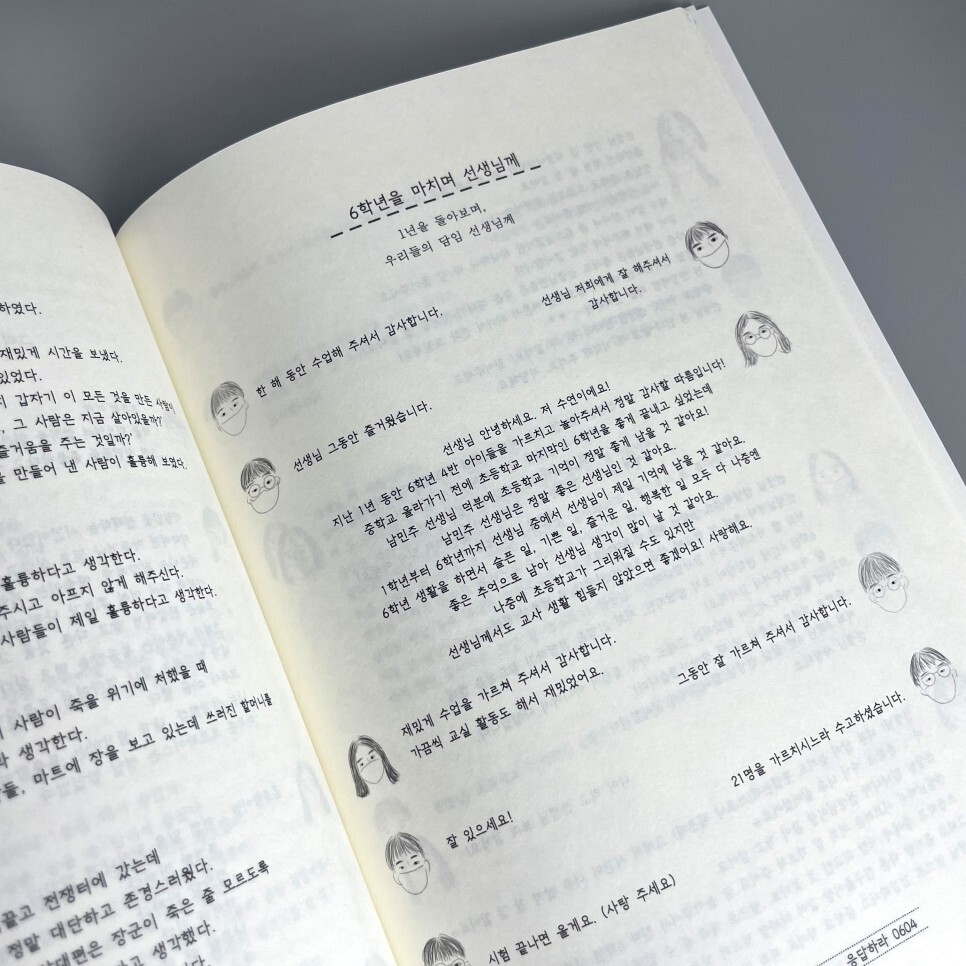 하였다.
재밌게 시간을 보냈다.
있었다.
갑자기 이 모든 것을 만든 사람이
그 사람은 지금 살아있을까?
즐거움을 주는 것일까?
만들어 낸 사람이 훌륭해 보였다.
훌륭하다고 생각한다.
주시고 아프지 않게 해주신다.
사람들이 제일 훌륭하다고 생각한다.
사람이 죽을 위기에 처했을 때
생각한다.
마트에 장을 보고 있는데 쓰러진 할머니를
끌고 전쟁터에 갔는데
정말 대단하고 존경스러웠다.
장군이 죽은 줄 모르도록
생각했다.
6학년을 마치며 선생님께
1년을 돌아보며,
우리들의 담임 선생님께
선생님 저희에게 잘 해주셔서
감사합니다.
한 해 동안 수업해 주셔서 감사합니다.
선생님 그동안 즐거웠습니다.
선생님 안녕하세요. 저 수연이에요!
지난 1년 동안 6학년 4반 아이들을 가르치고 놀아주셔서 정말 감사할 따름입니다!
중학교 올라가기 전에 초등학교 마지막인 6학년을 좋게 끝내고 싶었는데
남민주 선생님 덕분에 초등학교 기억이 정말 좋게 남을 것 같아요!
남민주 선생님은 정말 좋은 선생님인 것 같아요.
1학년부터 6학년까지 선생님 중에서 선생님이 제일 기억에 남을 것 같아요.
6학년 생활을 하면서 슬픈 일, 기쁜 일, 즐거운 일, 행복한 일 모두 다 나중엔
좋은 추억으로 남아 선생님 생각이 많이 날 것 같아요.
나중에 초등학교가 그리워질 수도 있지만
선생님께서도 교사 생활 힘들지 않았으면 좋겠어요! 사랑해요.
그동안 잘 가르쳐 주셔서 감사합니다.
재밌게 수업을 가르쳐 주셔서 감사합니다.
가끔씩 교실 활동도 해서 재밌었어요.
21명을 가르치시느라 수고하셨습니다.
잘 있으세요!
시험 끝나면 올게요. (사탕 주세요)
응답하라 0604